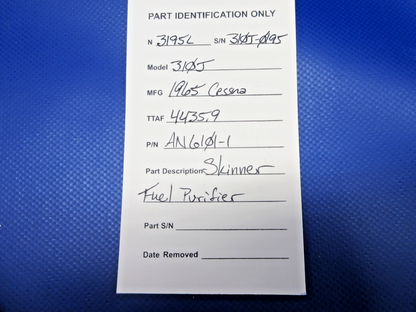 PART IDENTIFICATION ONLY
N 3195L S/N 310J-0195
Model 310J
MFG 1965 Cessna
TTAF 4435.9
P/N AN6101-1
Part Description Skinner
Fuel Purifier
Part S/N
Date Removed